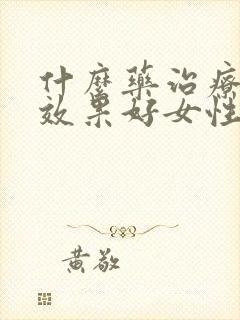 什麼藥治療
效果好女性
黃敬